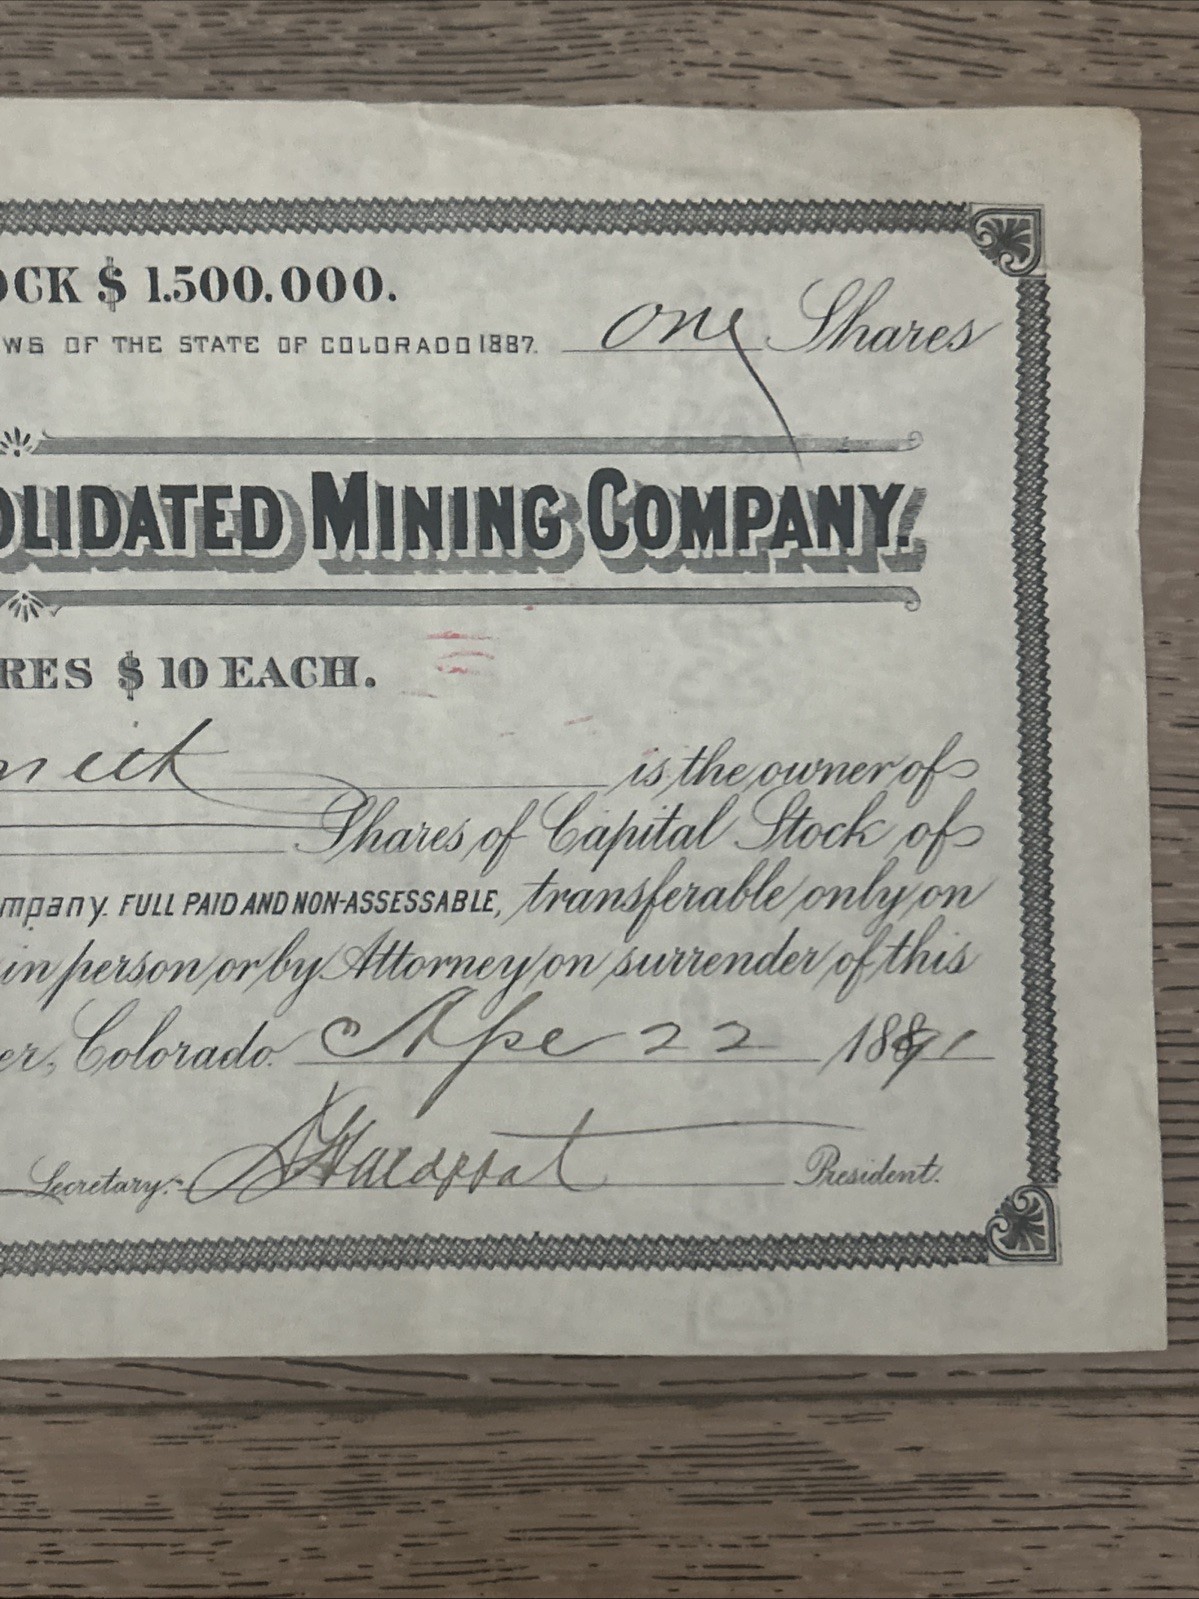 OCK $ 1.500.000.
WS OF THE STATE OF COLORADO 1887. one Shares
OLIDATED MINING COMPANY.
RES $ 10 EACH.
is the owner of
Shares of Capital Stock of
mpany. FULL PAID AND NON-ASSESSABLE, transferable only on
in person or by Attorney on surrender of this
er, Colorado. Apr 22 1891
Secretary. President.